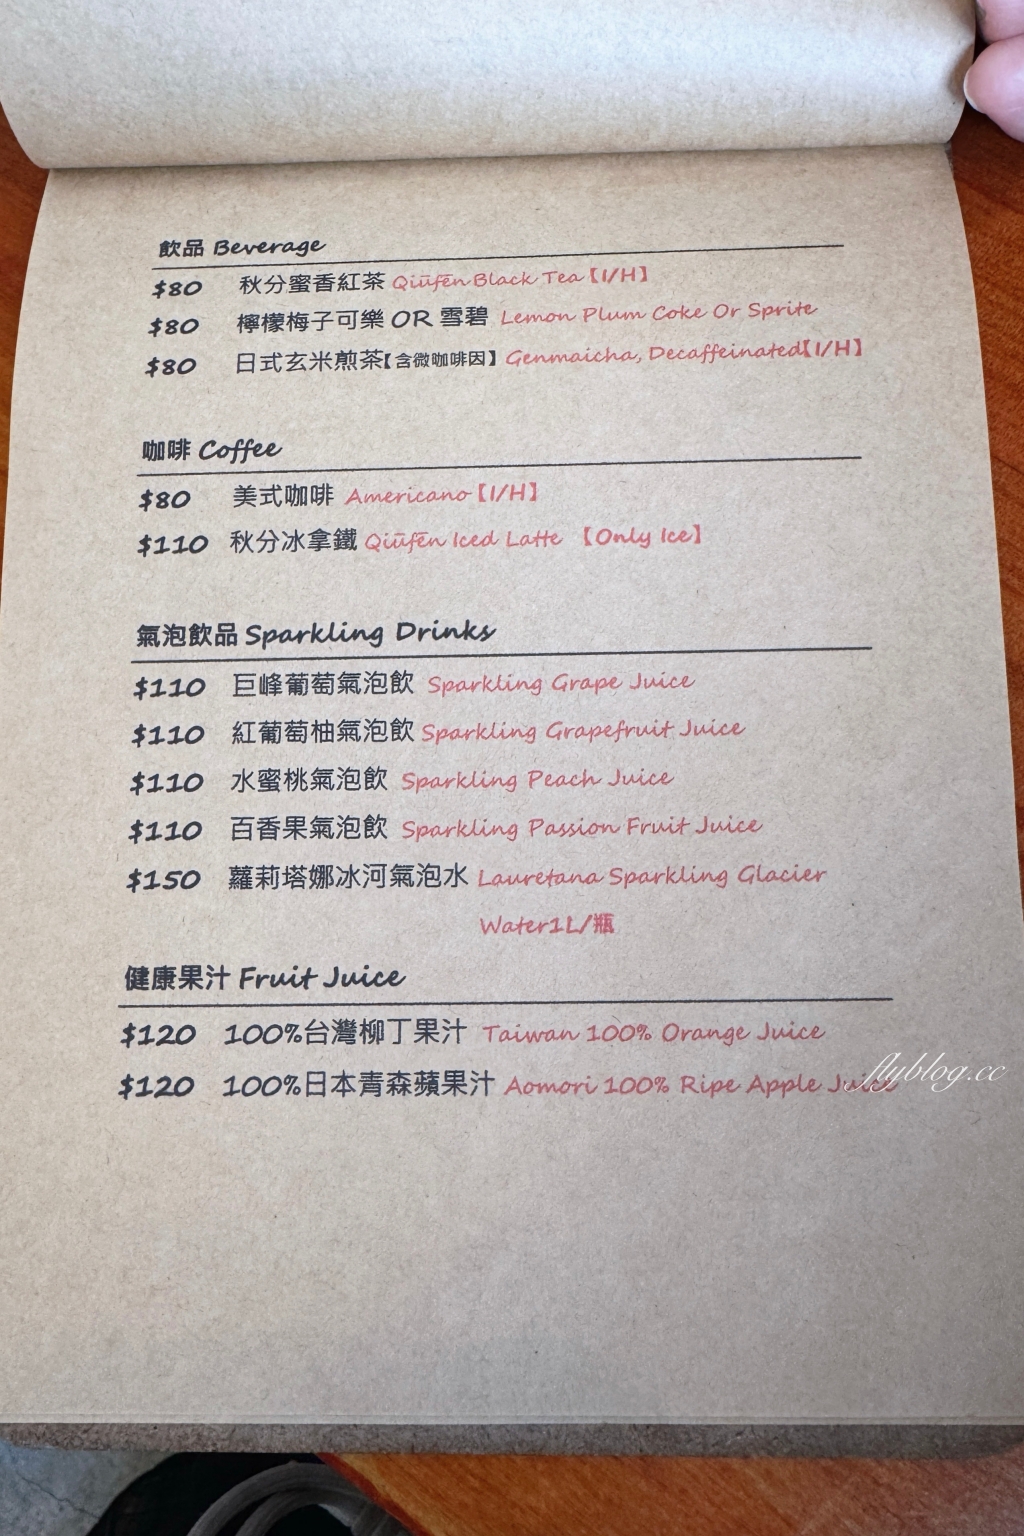 飲品 Beverage
$80 秋分蜜香紅茶 Qiūfēn Black Tea【I/H】
$80 檸檬梅子可樂 OR 雪碧 Lemon Plum Coke Or Sprite
$80 日式玄米煎茶【含微咖啡因】 Genmaicha, Decaffeinated【I/H】
咖啡 Coffee
$80 美式咖啡 Americano【I/H】
$110 秋分冰拿鐵 Qiūfēn Iced Latte 【Only Ice】
氣泡飲品 Sparkling Drinks
$110 巨峰葡萄氣泡飲 Sparkling Grape Juice
$110 紅葡萄柚氣泡飲 Sparkling Grapefruit Juice
$110 水蜜桃氣泡飲 Sparkling Peach Juice
$110 百香果氣泡飲 Sparkling Passion Fruit Juice
$150 蘿莉塔娜冰河氣泡水 Lauretana Sparkling Glacier
Water1L/瓶
健康果汁 Fruit Juice
$120 100%台灣柳丁果汁 Taiwan 100% Orange Juice
$120 100%日本青森蘋果汁 Aomori 100% Ripe Apple Juice
flyblog.cc